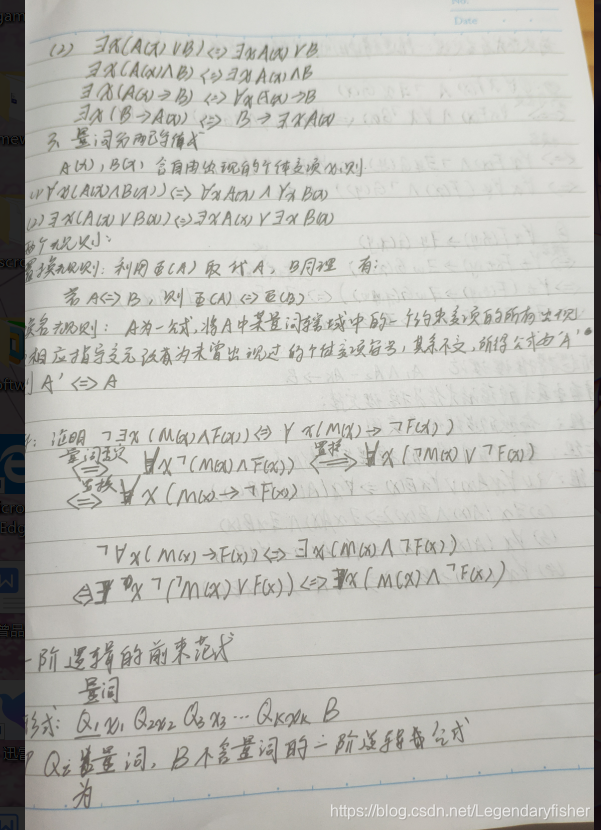 No.
Date
(2) ∃x(A(x)∨B)<=>∃xA(x)∨B
∃x(A(x)∧B)<=>∃xA(x)∧B
∃x(A(x)→B)<=>∀xA(x)→B
∃x(B→A(x))<=>B→∃xA(x)
3、量词分配等值式
A(x),B(x)含自由出现的个体变项x,则
(1)∀x(A(x)∧B(x))<=>∀xA(x)∧∀xB(x)
(2)∃x(A(x)∨B(x))<=>∃xA(x)∨∃xB(x)
个规则:
置换规则:利用Φ(A)取代A,B同理 有:
若A<=>B,则Φ(A)<=>Φ(B)
名规则:A为一公式,将A中某量词辖域中的一个约束变项的所有出现
相应指导变元改为未曾出现过的个体变项符号,其余不变,所得公式为'A'
A'<=>A
:证明 ¬∃x(M(x)∧F(x))<=>∀x(M(x)→¬F(x))
量词否定 置换
<=>∀x¬(M(x)∧F(x))<=>∀x(¬M(x)∨¬F(x))
置换
<=>∀x(M(x)→¬F(x))
¬∀x(M(x)→F(x))<=>∃x(M(x)∧¬F(x))
<=>∃x¬(¬M(x)∨F(x))<=>∃x(M(x)∧¬F(x))
一阶逻辑的前束范式
量词
形式:Q₁x₁Q₂x₂Q₃x₃…QₖxₖB
Qi 量词,B不含量词的一阶逻辑公式
为
https://blog.csdn.net/Legendaryfisher